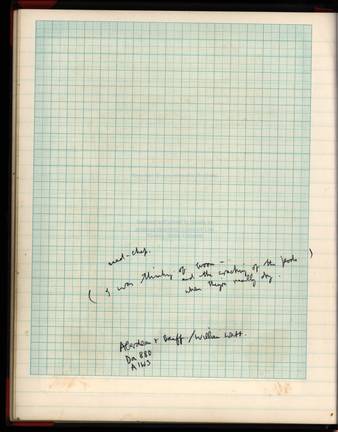 seed-chap.
( I was thinking of broom - )
and the cracking of the pods
when they're really dry.
Aberdeen + Banff / William Watt.
Da 880
A1W3